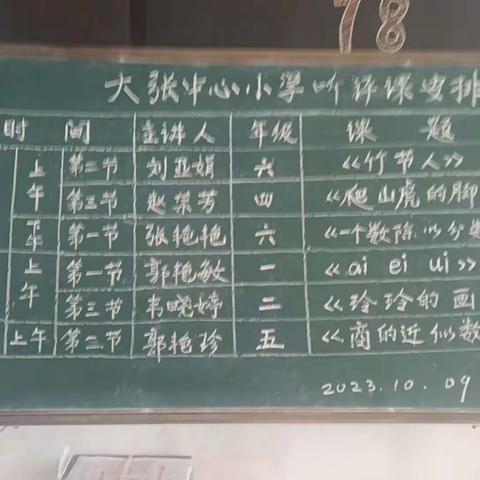 78
大张中心小学听评课安排
时间 主讲人 年级 课题
上午 第二节 刘亚娟 六 《竹节人》
第三节 赵荣芳 四 《爬山虎的脚
下午 第一节 张艳艳 六 《一个数除以分数
上午 第一节 郭艳敏 一 《ai ei ui》
第三节 韦晓婷 二 《玲玲的画
上午 第二节 郭艳珍 五 《商的近似数
2023.10.09